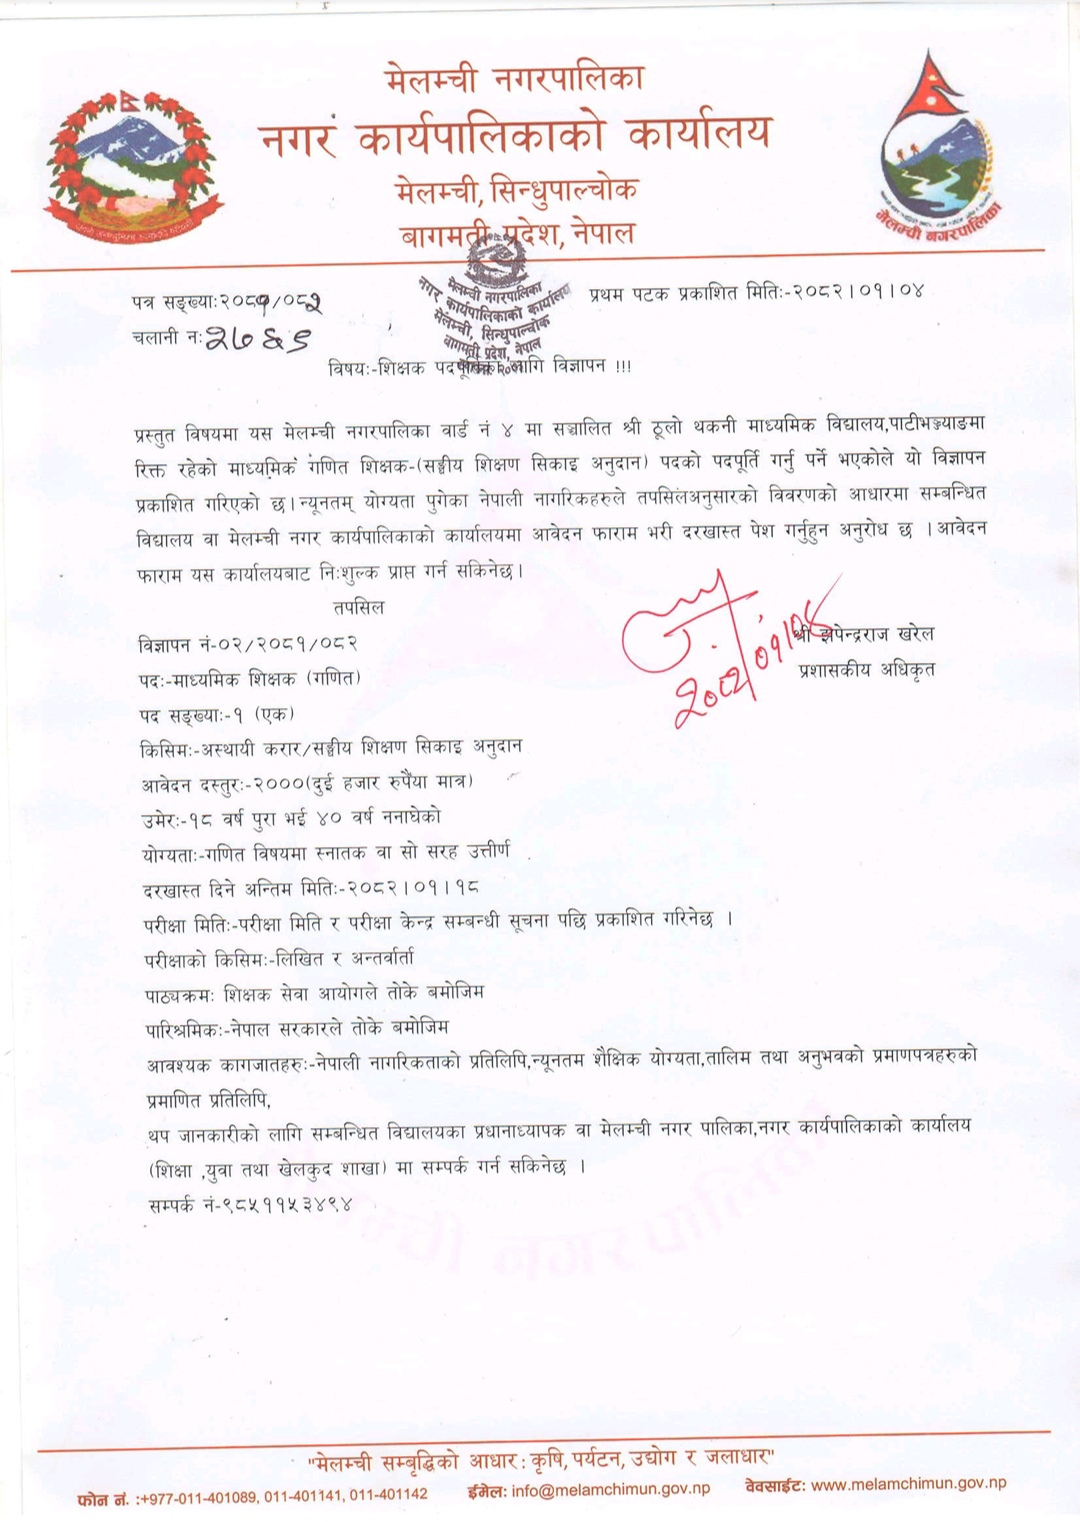 मेलम्ची नगरपालिका
नगर कार्यपालिकाको कार्यालय
मेलम्ची, सिन्धुपाल्चोक
बागमती प्रदेश, नेपाल
मेलम्ची नगरपालिका
मेलम्ची नगरपालिका
नगर कार्यपालिकाको कार्यालय
मेलम्ची, सिन्धुपाल्चोक
बागमती प्रदेश, नेपाल
पत्र सङ्ख्याः२०८१/०८२
प्रथम पटक प्रकाशित मितिः-२०८२।०१।०४
चलानी नः २७६९
विषयः-शिक्षक पदपूर्तिका लागि विज्ञापन !!!
प्रस्तुत विषयमा यस मेलम्ची नगरपालिका वार्ड नं ४ मा सञ्चालित श्री ठूलो थकनी माध्यमिक विद्यालय,पाटीभञ्ज्याङमा
रिक्त रहेको माध्यमिक गणित शिक्षक-(सङ्घीय शिक्षण सिकाइ अनुदान) पदको पदपूर्ति गर्नु पर्ने भएकोले यो विज्ञापन
प्रकाशित गरिएको छ।न्यूनतम् योग्यता पुगेका नेपाली नागरिकहरुले तपसिलअनुसारको विवरणको आधारमा सम्बन्धित
विद्यालय वा मेलम्ची नगर कार्यपालिकाको कार्यालयमा आवेदन फाराम भरी दरखास्त पेश गर्नुहुन अनुरोध छ ।आवेदन
फाराम यस कार्यालयबाट निःशुल्क प्राप्त गर्न सकिनेछ।
तपसिल
विज्ञापन नं-०२/२०८१/०८२
श्री झपेन्द्रराज खरेल
पदः-माध्यमिक शिक्षक (गणित)
प्रशासकीय अधिकृत
२०८२/०१/०४
पद सङ्ख्याः-१ (एक)
किसिमः-अस्थायी करार/सङ्घीय शिक्षण सिकाइ अनुदान
आवेदन दस्तुरः-२०००(दुई हजार रुपैँया मात्र)
उमेरः-१८ वर्ष पुरा भई ४० वर्ष ननाघेको
योग्यताः-गणित विषयमा स्नातक वा सो सरह उत्तीर्ण
दरखास्त दिने अन्तिम मितिः-२०८२।०१।१८
परीक्षा मितिः-परीक्षा मिति र परीक्षा केन्द्र सम्बन्धी सूचना पछि प्रकाशित गरिनेछ ।
परीक्षाको किसिमः-लिखित र अन्तर्वार्ता
पाठ्यक्रमः शिक्षक सेवा आयोगले तोके बमोजिम
पारिश्रमिकः-नेपाल सरकारले तोके बमोजिम
आवश्यक कागजातहरुः-नेपाली नागरिकताको प्रतिलिपि,न्यूनतम शैक्षिक योग्यता,तालिम तथा अनुभवको प्रमाणपत्रहरुको
प्रमाणित प्रतिलिपि,
थप जानकारीको लागि सम्बन्धित विद्यालयका प्रधानाध्यापक वा मेलम्ची नगर पालिका,नगर कार्यपालिकाको कार्यालय
(शिक्षा ,युवा तथा खेलकुद शाखा) मा सम्पर्क गर्न सकिनेछ ।
सम्पर्क नं-९८५११५३४९४
"मेलम्ची सम्बृद्धिको आधार : कृषि, पर्यटन, उद्योग र जलाधार"
फोन नं. :+977-011-401089, 011-401141, 011-401142 ईमेल: info@melamchimun.gov.np वेवसाईट: www.melamchimun.gov.np